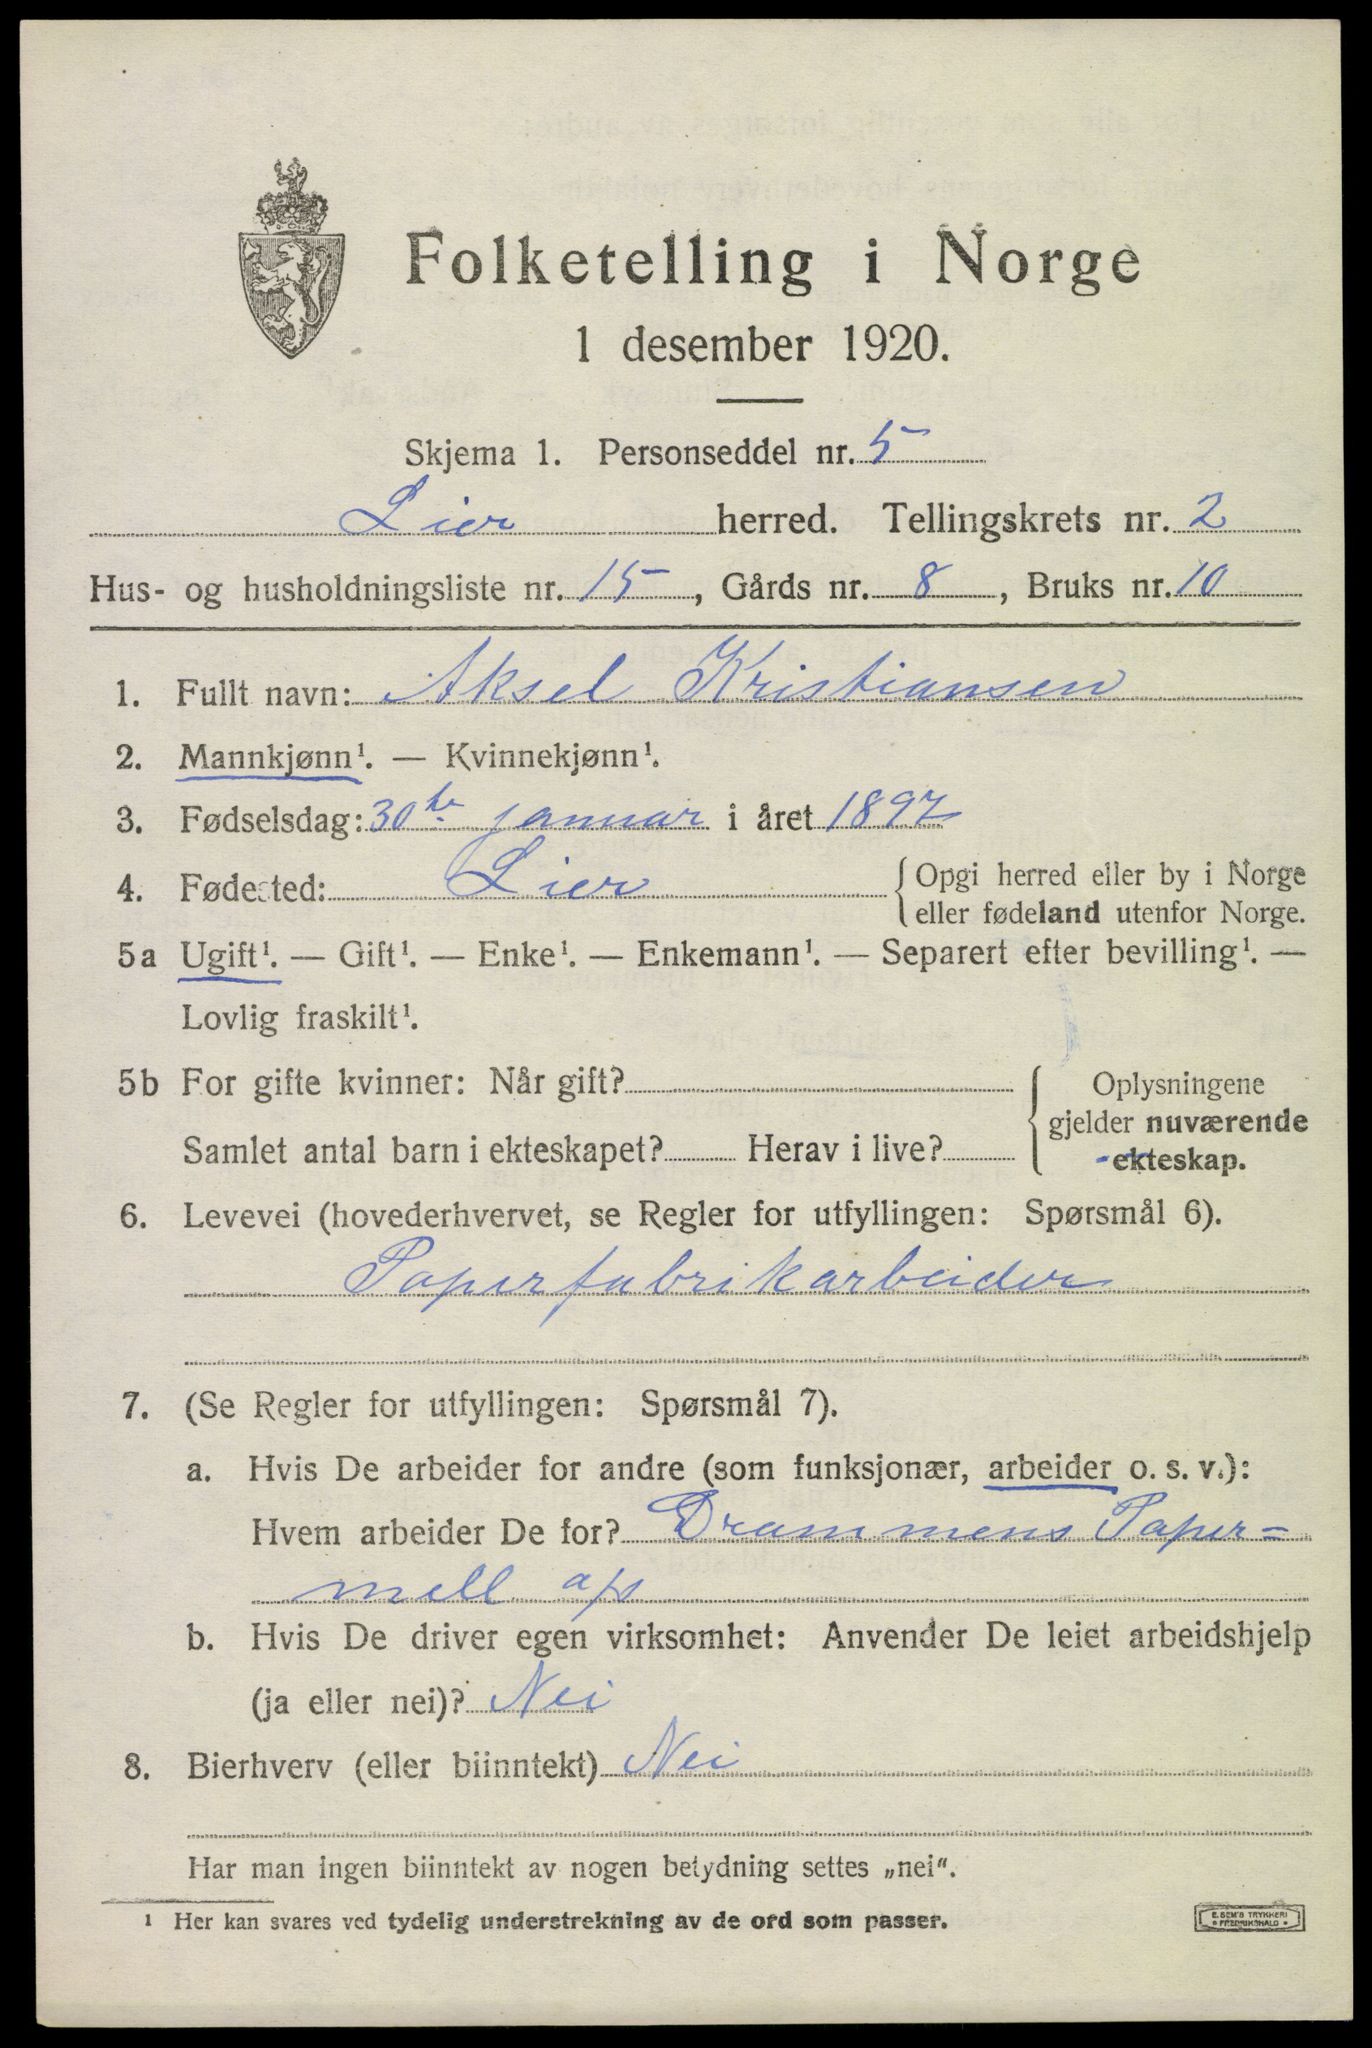 Folketelling i Norge
1 desember 1920.
Skjema 1. Personseddel nr. 5
Lier herred. Tellingskrets nr. 2
Hus- og husholdningsliste nr. 15, Gårds nr. 8, Bruks nr. 10
1. Fullt navn: Aksel Kristiansen
2. Mannkjønn¹. — Kvinnekjønn¹.
3. Fødselsdag: 30te januar i året 1897
4. Fødested: Lier { Opgi herred eller by i Norge
eller fødeland utenfor Norge.
5a Ugift¹. — Gift¹. — Enke¹. — Enkemann¹. — Separert efter bevilling¹. —
Lovlig fraskilt¹.
5b For gifte kvinner: Når gift? { Oplysningene
gjelder nuværende
Samlet antal barn i ekteskapet? Herav i live? ekteskap.
6. Levevei (hovederhvervet, se Regler for utfyllingen: Spørsmål 6).
Paperfabrikarbeider
7. (Se Regler for utfyllingen: Spørsmål 7).
a. Hvis De arbeider for andre (som funksjonær, arbeider o. s. v.):
Hvem arbeider De for? Drammens Paper-
mell a/s
b. Hvis De driver egen virksomhet: Anvender De leiet arbeidshjelp
(ja eller nei)? Nei
8. Bierhverv (eller biinntekt) Nei
Har man ingen biinntekt av nogen betydning settes „nei".
¹ Her kan svares ved tydelig understrekning av de ord som passer.
E. SEM'S TRYKKERI
• FREDRIKSHALD •